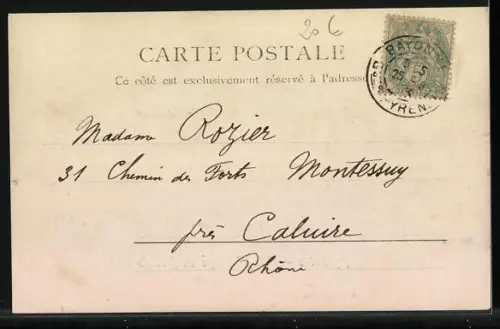 20 6
CARTE POSTALE
Ce côté est exclusivement réservé à l'adresse
BAYONNE
Madame Rozier
31 Chemin des Forts Montessuy
près Caluire
Rhône